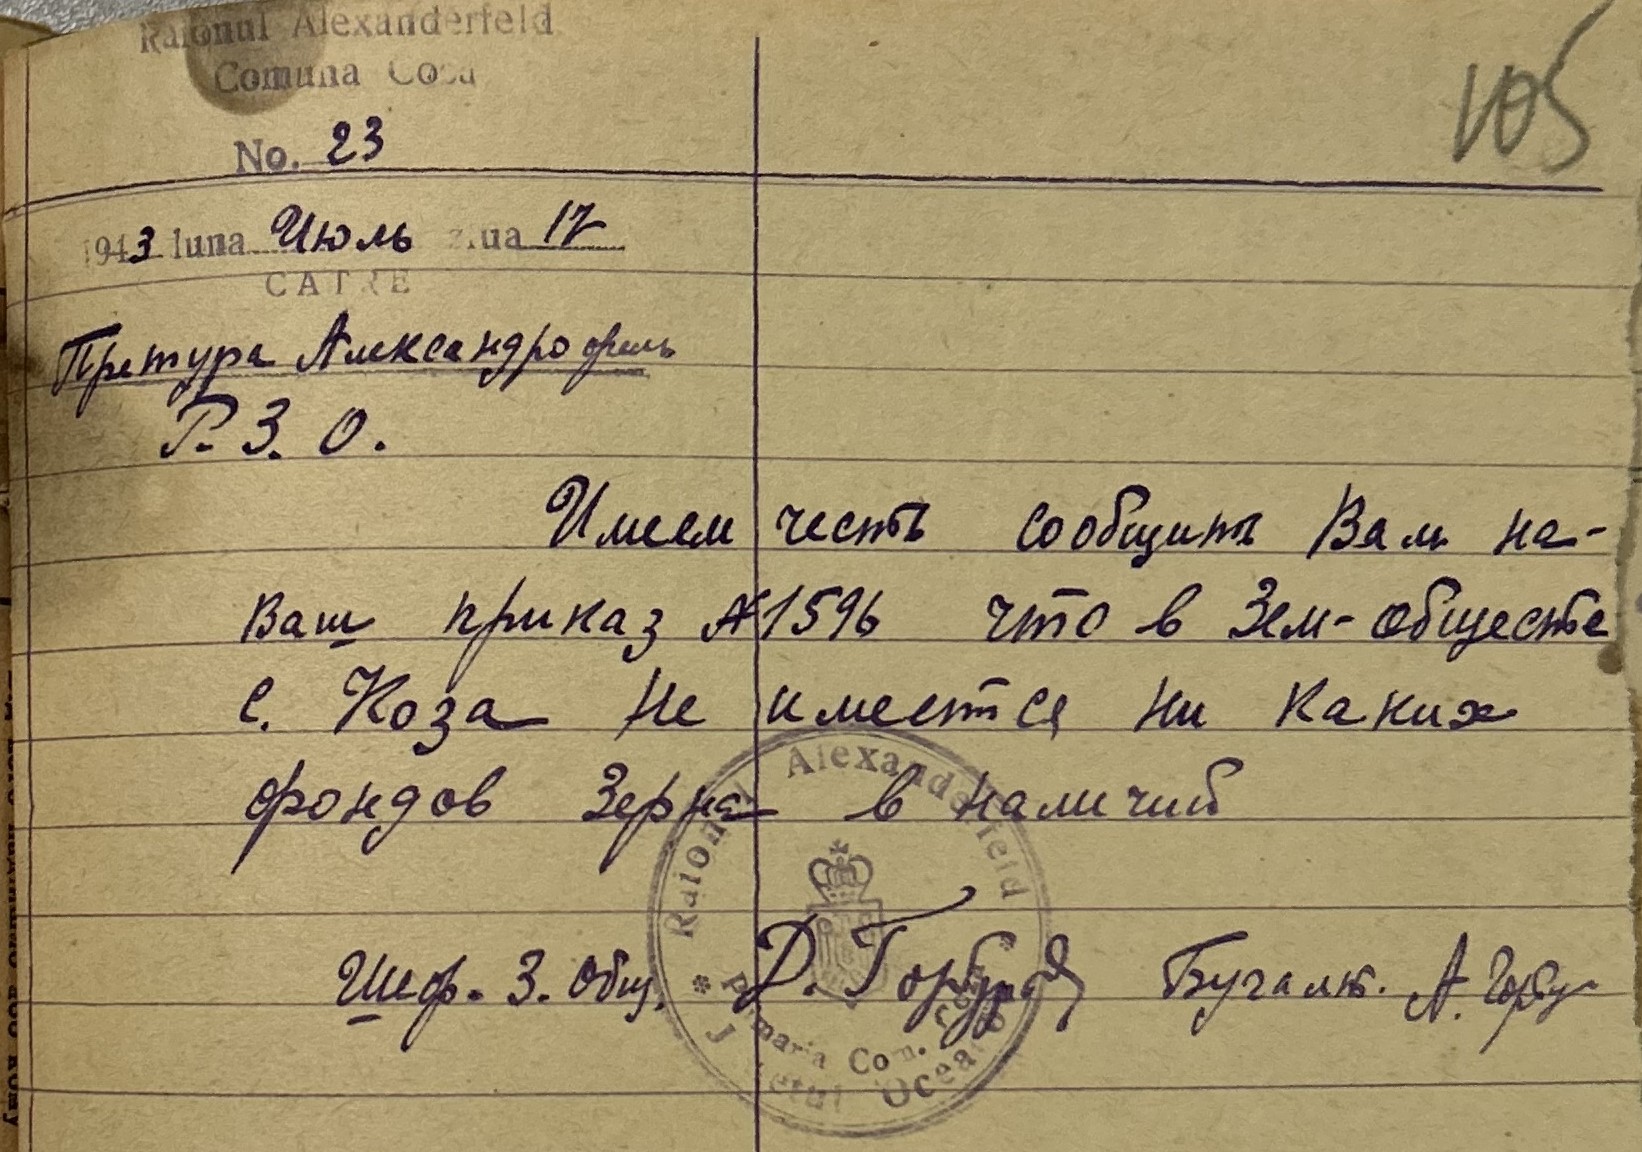 Raionul Alexanderfeld
Comuna Coza
105
No. 23
1943 luna Июль ziua 17
CATRE
Претура Александрофель
Р. З. О.
Имеем честь сообщить Вам на-
Ваш приказ №1596 что в Зем-обществе
с. Коза не имеется ни каких
фондов Зерна в наличий
Шеф. З. Общ. Д. Горбу Бугалт. А. Горбу
Raionul Alexanderfeld
* Primaria Com. Coza *
Judetul Oceacov